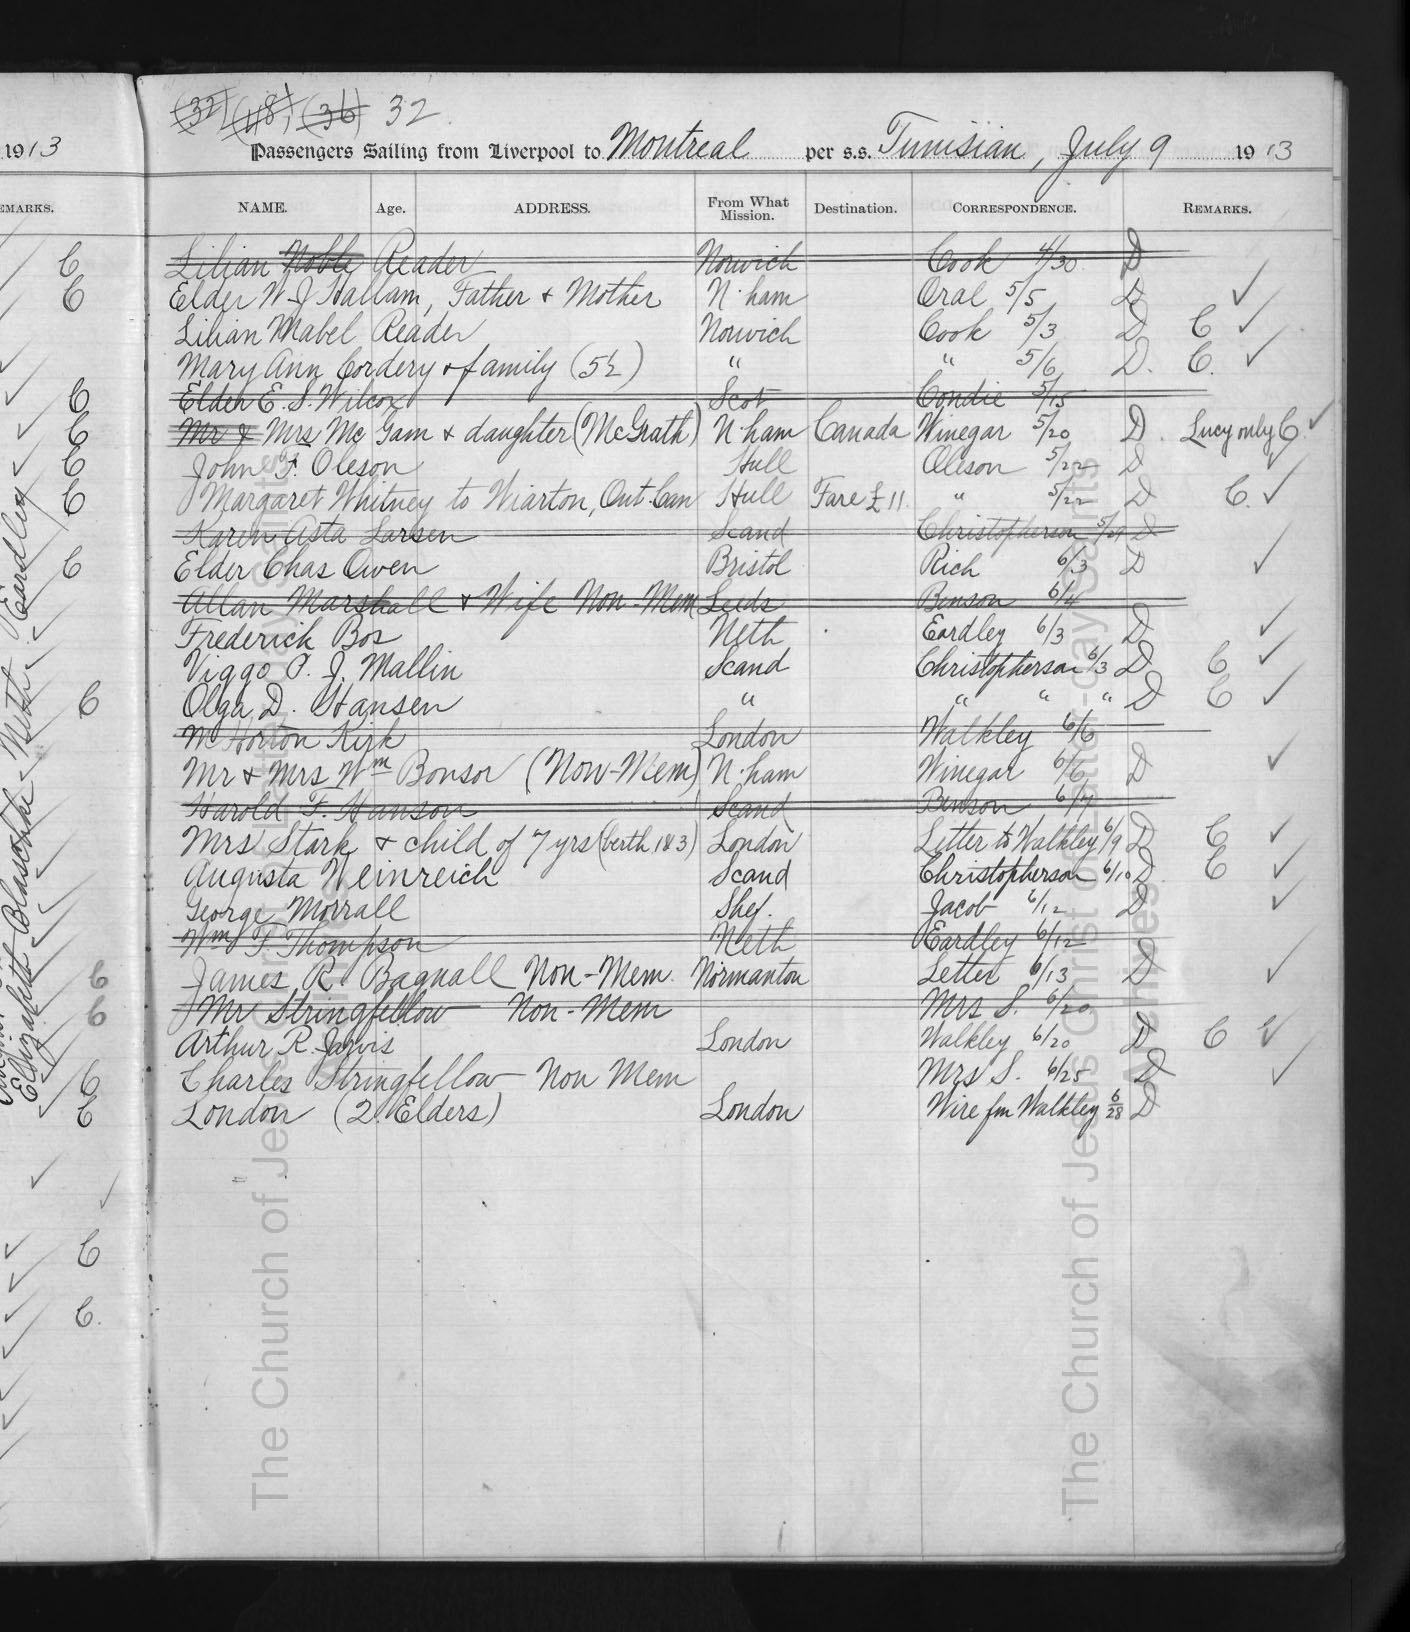 (32) (48) (36) 32
1913
Passengers Sailing from Liverpool to Montreal per s.s. Tunisian, July 9 1913
REMARKS.
NAME. Age. ADDRESS. From What Mission. Destination. CORRESPONDENCE. REMARKS.
Lilian Noble Reader Norwich Cook 4/30 D
Elder W J Hallam, Father & Mother N·ham Oral 5/5 D ✓
Lilian Mabel Reader Norwich Cook 5/3 D C ✓
Mary Ann Cordery & family (5½) " " 5/6 D. C. ✓
Elder E. S. Wilcox Scot Condie 5/15
Mr & Mrs Mc Gam & daughter (McGrath) N·ham Canada Winegar 5/20 D. Lucy only C ✓
John F. Oleson Hull Oleson 5/22 D ✓
Margaret Whitney to Wiarton, Ont. Can Hull Fare £11. " 5/22 D C. ✓
Karen Asta Larsen Scand Christopherson 5/29 D
Elder Chas Owen Bristol Rich 6/3 D ✓
Allan Marshall & Wife Non-Mem Leeds Benson 6/4
Frederick Bos Neth Eardley 6/3 D ✓
Viggo P. J. Mallin Scand Christopherson 6/3 D C ✓
Olga D. Hansen " " " " D C ✓
Horton Kirk London Walkley 6/6
Mr & Mrs Wm Bonsor (Non-Mem) N·ham Winegar 6/6 D ✓
Harold F. Hanson Scand Benson 6/7
Mrs Stark & child of 7 yrs (berth 1&3) London Letter to Walkley 6/9 D C ✓
Augusta Weinreich Scand Christopherson 6/10 D. C ✓
George Morrall Shef. Jacob 6/12 D ✓
Wm F. Thompson Neth Eardley 6/12
James R. Bagnall Non-Mem. Normanton Letter 6/13 D ✓
Mr Stringfellow Non-Mem Mrs S. 6/20
Arthur R. Jarvis London Walkley 6/20 D C ✓
Charles Stringfellow Non Mem Mrs S. 6/25 D ✓
London (2 Elders) London Wire fm Walkley 6/28 D
Eardley
Neth
Elizabeth Blaschke
The Church of Jesus Christ of Latter-day Saints
Archives